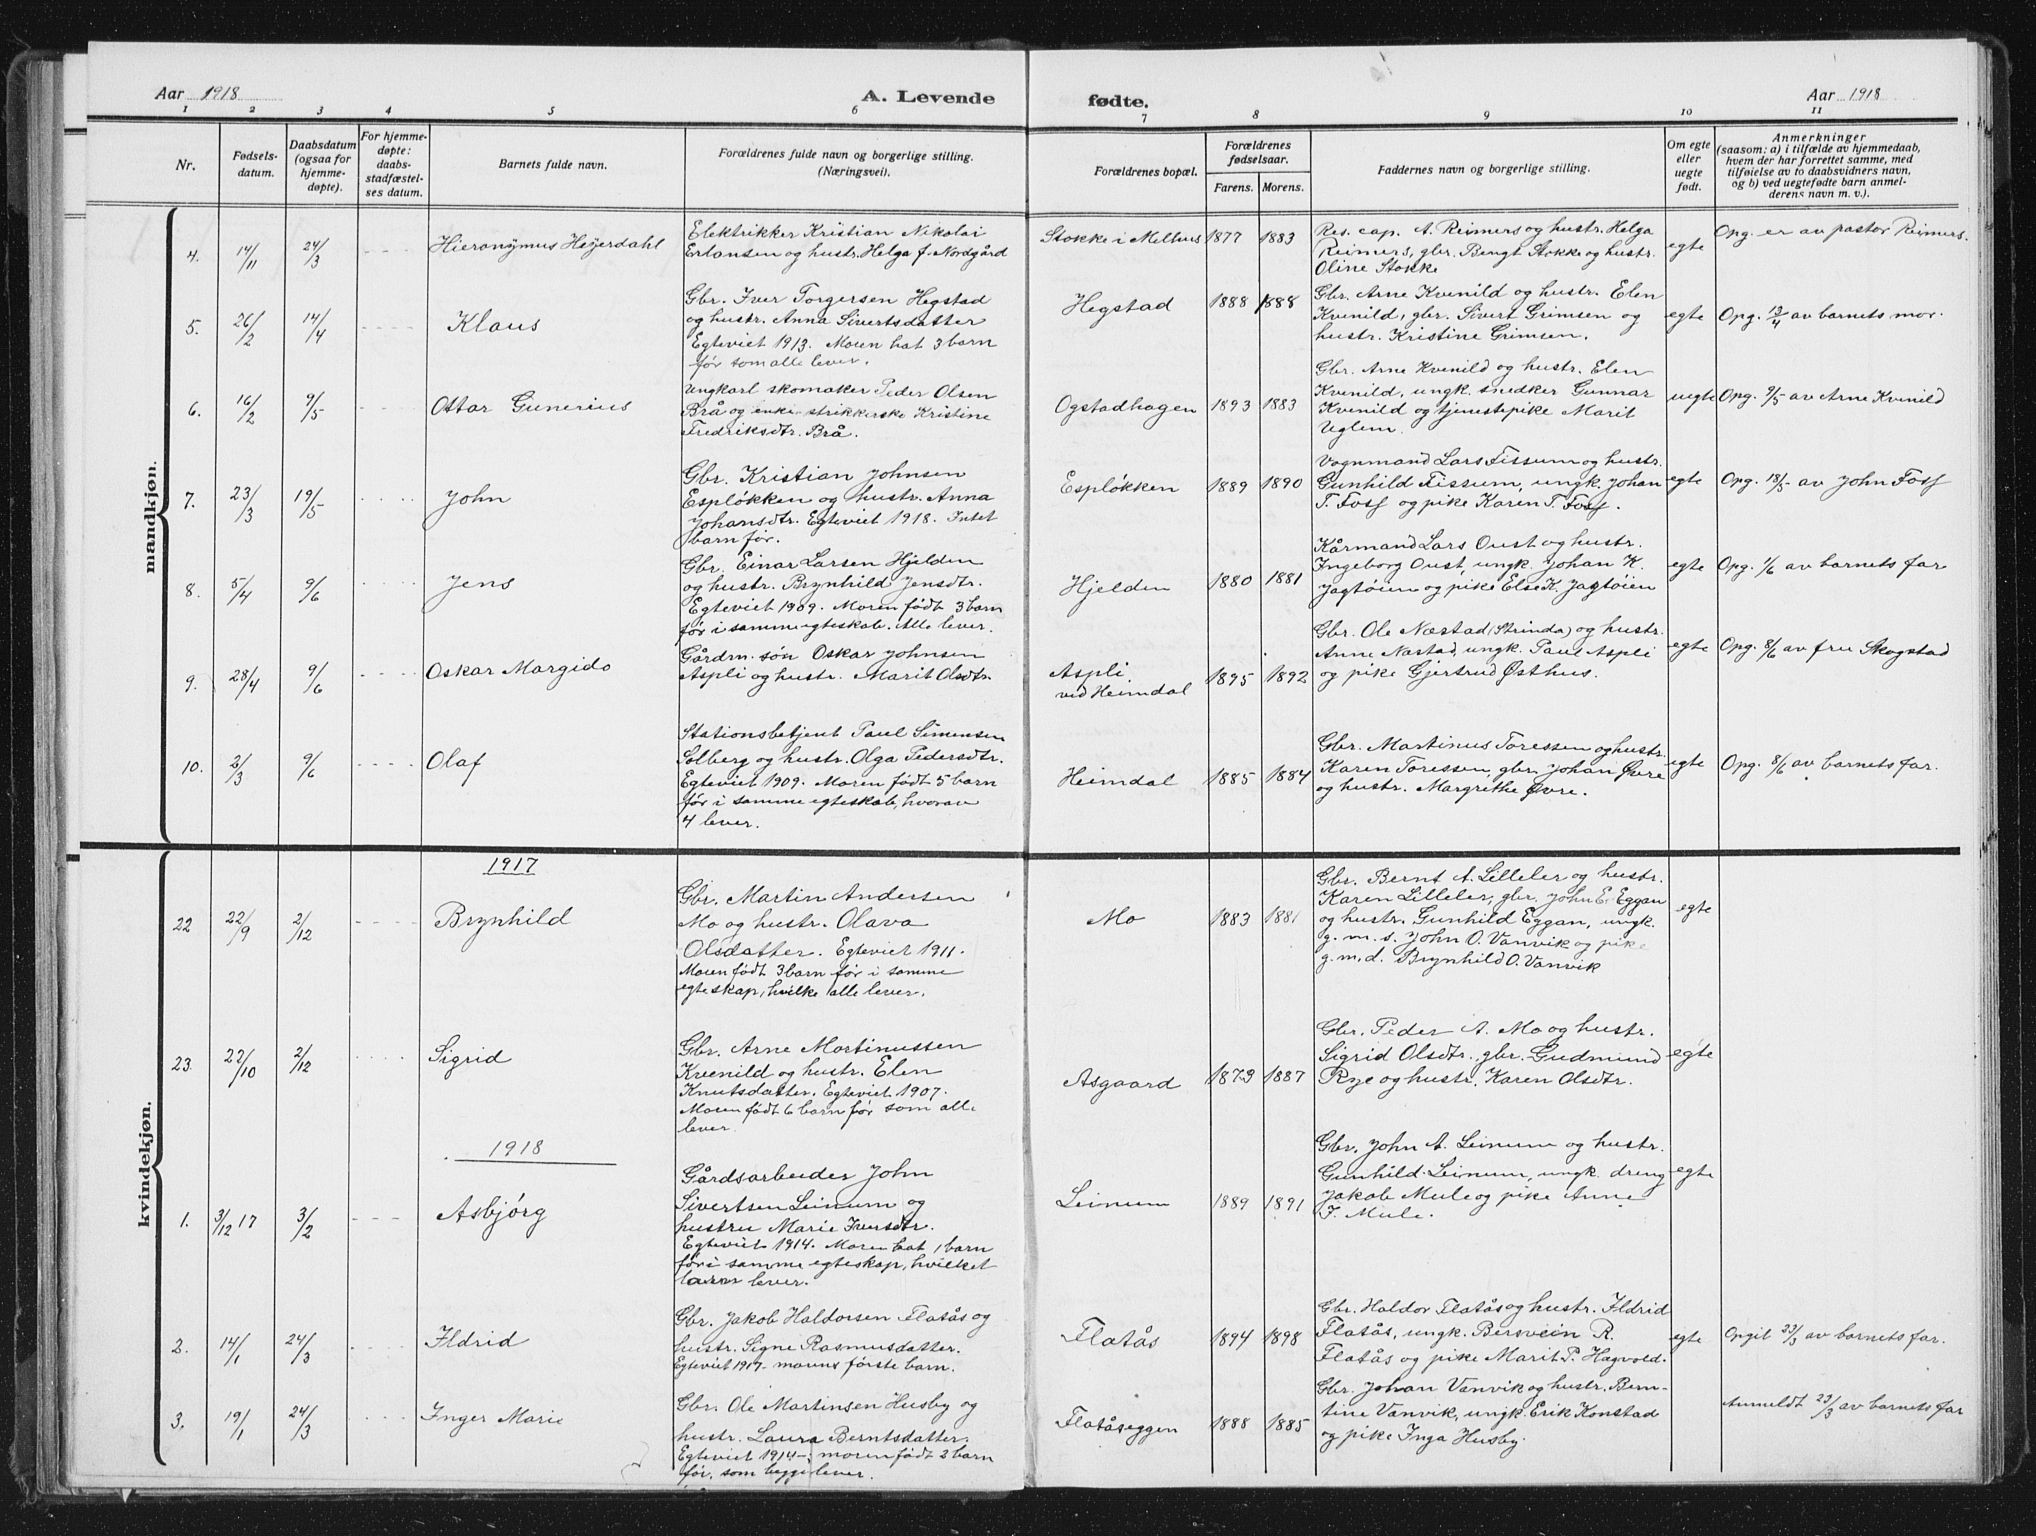 Aar 1918
A. Levende
fødte.
Aar 1918
1 2 3 4 5 6 7 8 9 10 11
Nr.
Fødsels-
datum.
Daabsdatum
(ogsaa for
hjemme-
døpte).
For hjemme-
døpte:
daabs-
stadfæstel-
ses datum.
Barnets fulde navn.
Forældrenes fulde navn og borgerlige stilling.
(Næringsvei).
Forældrenes bopæl.
Forældrenes
fødselsaar.
Farens. Morens.
Faddernes navn og borgerlige stilling.
Om egte
eller
uegte
født.
Anmerkninger
(saasom: a) i tilfælde av hjemmedaab,
hvem der har forrettet samme, med
tilføielse av to daabsvidners navn,
og b) ved uegtefødte barn anmel-
derens navn m. v.).
mandkjøn.
4.
14/11
24/3
Hieronymus Heyerdahl
Elektrikker Kristian Nikolai
Erlansen og hustr. Helga f. Nordgård
Stokke i Melhus
1877 1883
Res. cap. A. Reimers og hustr. Helga
Reimers, gbr. Bengt Stokke og hustr.
Oline Stokke
egte
Opg. er av pastor Reimers.
5.
26/2
14/4
Klaus
Gbr. Iver Torgersen Hegstad
og hustr. Anna Sivertsdatter
Egteviet 1913. Moren hat 3 barn
før som alle lever.
Hegstad
1888 1888
Gbr. Arne Kvenild og hustr. Elen
Kvenild, gbr. Sivert Grimsen og
hustr. Kristine Grimsen.
egte
Opg. 13/4 av barnets mor.
6.
16/2
9/5
Ottar Gunerius
Ungkarl skomaker Peder Olsen
Brå og enke strikkerske Kristine
Fredriksdtr. Brå.
Ogstadhagen
1893 1883
Gbr. Arne Kvenild og hustr. Elen
Kvenild, ungk. snedker Gunnar
Kvenild og tjenestepike Marit
Uglem.
uegte
Opg. 9/5 av Arne Kvenild
7.
23/3
19/5
John
Gbr. Kristian Johnsen
Espløkken og hustr. Anna
Johansdtr. Egteviet 1918. Intet
barn før.
Espløkken
1889 1890
Vognmand Lars Tissum og hustr.
Gunhild Tissum, ungk. Johan
T. Foss og pike Karen T. Foss.
egte
Opg. 18/5 av John Foss
8.
5/4
9/6
Jens
Gbr. Einar Larsen Hjelden
og hustr. Brynhild Jensdtr.
Egteviet 1909. Moren født 3 barn
før i samme egteskab. Alle lever.
Hjelden
1880 1881
Kårmand Lars Oust og hustr.
Ingeborg Oust, ungk. Johan K.
Jagtøien og pike Else K. Jagtøien
egte
Opg. 1/6 av barnets far
9.
28/4
9/6
Oskar Margido
Gårdm. søn Oskar Johnsen
Aspli og hustr. Marit Olsdtr.
Aspli
ved Heimdal
1895 1892
Gbr. Ole Næstad (Strinda) og hustr.
Anne Nastad, ungk. Paul Aspli
og pike Gjertrud Østhus.
egte
Opg. 8/6 av fru Skogstad
10.
2/3
9/6
Olaf
Stationsbetjent Paul Simensen
Solberg og hustr. Olga Pedersdtr.
Egteviet 1909. Moren født 5 barn
før i samme egteskab, hvorav
4 lever.
Heimdal
1885 1884
Gbr. Martinus Toressen og hustr.
Karen Toressen, gbr. Johan Øvre
og hustr. Margrethe Øvre.
egte
Opg. 8/6 av barnets far.
kvindekjøn.
1917
22
22/9
2/12
Brynhild
Gbr. Martin Andersen
Mo og hustr. Olava
Olsdatter. Egteviet 1911.
Moren født 3 barn før i samme
egteskap, hvilke alle lever.
Mo
1883 1881
Gbr. Bernt A. Lilleler og hustr.
Karen Lilleler, gbr. John E. Eggan
og hustr. Gunhild Eggan, ungk.
g. m. s. John O. Vanvik og pike
g. m. d. Brynhild O. Vanvik
egte
23.
22/10
2/12
Sigrid
Gbr. Arne Martinussen
Kvenild og hustr. Elen
Knutsdatter. Egteviet 1907.
Moren født 6 barn før som alle
lever.
Asgaard
1873 1887
Gbr. Peder A. Mo og hustr.
Sigrid Olsdtr. gbr. Gudmund
Rye og hustr. Karen Olsdtr.
egte
1918
1.
3/12 17
3/2
Asbjørg
Gårdsarbeider John
Sivertsen Leinum og
hustru Marie Iversdtr.
Egteviet 1914. Moren hat 1 barn
før i samme egteskap, hvilket
lever.
Leinum
1889 1891
Gbr. John A. Leinum og hustr.
Gunhild Leinum, ungk. dreng
Jakob Mule og pike Anne
F. Mule.
egte
2.
14/1
24/3
Ildrid
Gbr. Jakob Haldorsen Flatås og
hustr. Signe Rasmusdatter.
Egteviet 1917. morens første barn.
Flatås
1894 1898
Gbr. Haldor Flatås og hustr. Ildrid
Flatås, ungk. Bersvein R.
Flatås og pike Marit P. Hagvold.
egte
Opgit 23/3 av barnets far.
3.
19/1
24/3
Inger Marie
Gbr. Ole Martinsen Husby og
hustr. Laura Berntsdatter.
Egteviet 1914. moren født 2 barn
før, som begge lever.
Flatåseggen
1888 1885
Gbr. Johan Vanvik og hustr. Bern-
tine Vanvik, ungk. Erik Konstad
og pike Inga Husby.
Anmeldt 23/3 av barnets far